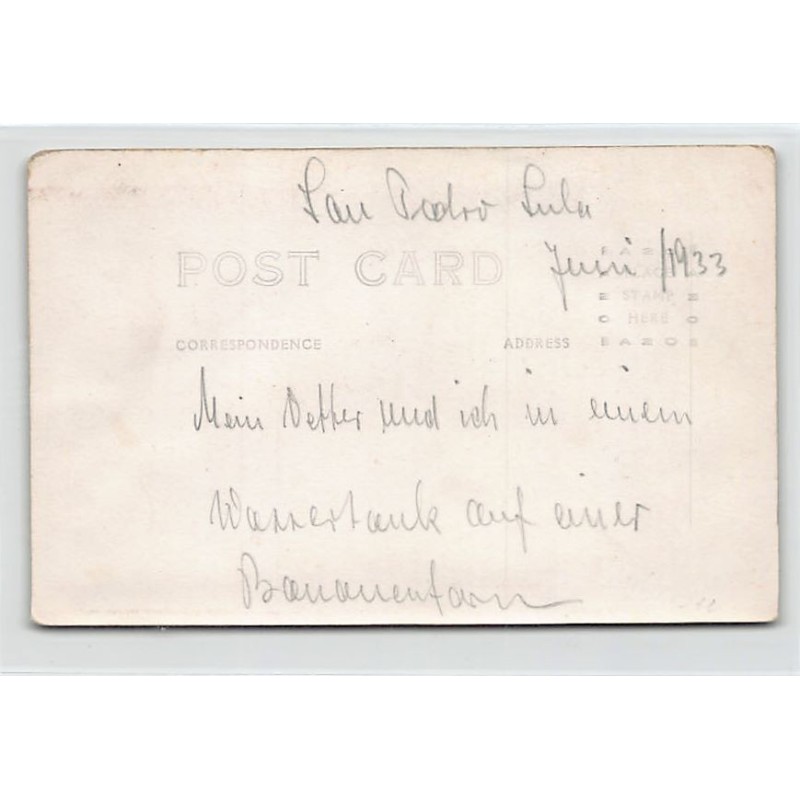 San Pedro Sula
Juni /1933
POST CARD
PLACE
STAMP
HERE
CORRESPONDENCE
ADDRESS
Mein Vetter und ich in einem
Wassertank auf einer
Bananenfarm